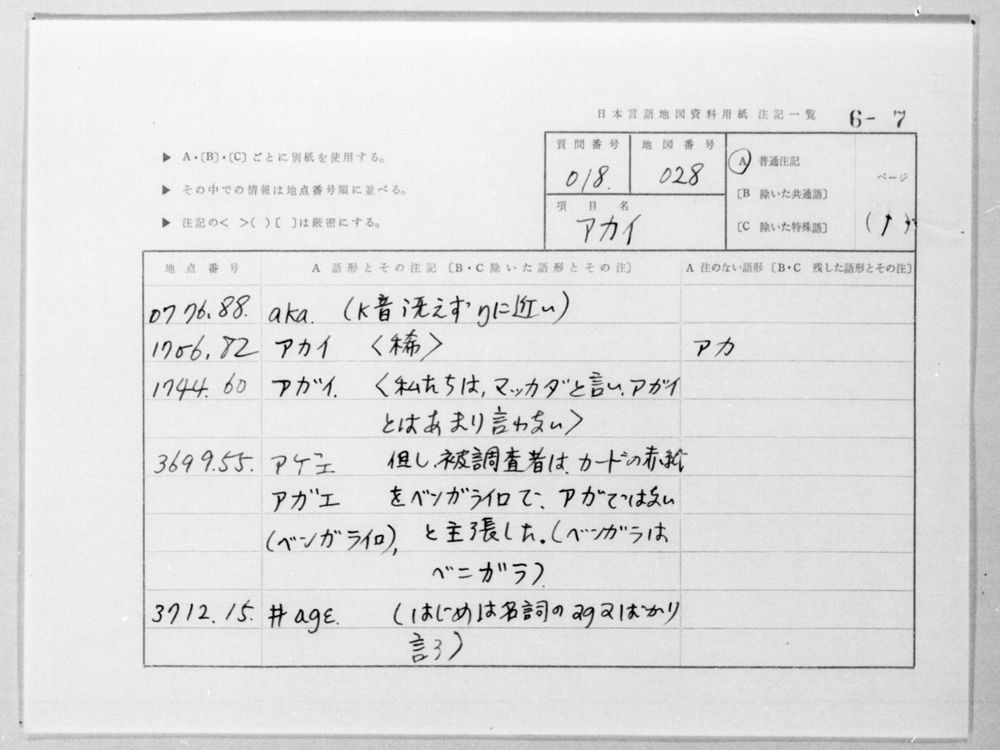 日本言語地図資料用紙 注記一覧 6-7
▶ A・〔B〕・〔C〕ごとに別紙を使用する。
▶ その中での情報は地点番号順に並べる。
▶ 注記の< >( )〔 〕は厳密にする。
質問番号 地図番号
018. 028
項目名
アカイ
A 普通注記
〔B 除いた共通語〕
〔C 除いた特殊語〕
ページ
(↑)
地点番号 A 語形とその注記〔B・C 除いた語形とその注〕 A 注のない語形〔B・C 残した語形とその注〕
0776.88. aka. (K音冴えずgに近い)
1706.82 アカイ 〈稀〉 アカ
1744.60 アガイ. 〈私たちは,マッカダと言い、アガイ
とはあまり言わない〉
3699.55. アゲエ 但し、被調査者は、カードの赤紙
アガエ をベンガライロで、アガではない
(ベンガライロ), と主張した。(ベンガラは
ベニガラ)
3712.15. #agɛ. (はじめは名詞のagaばかり
言う)